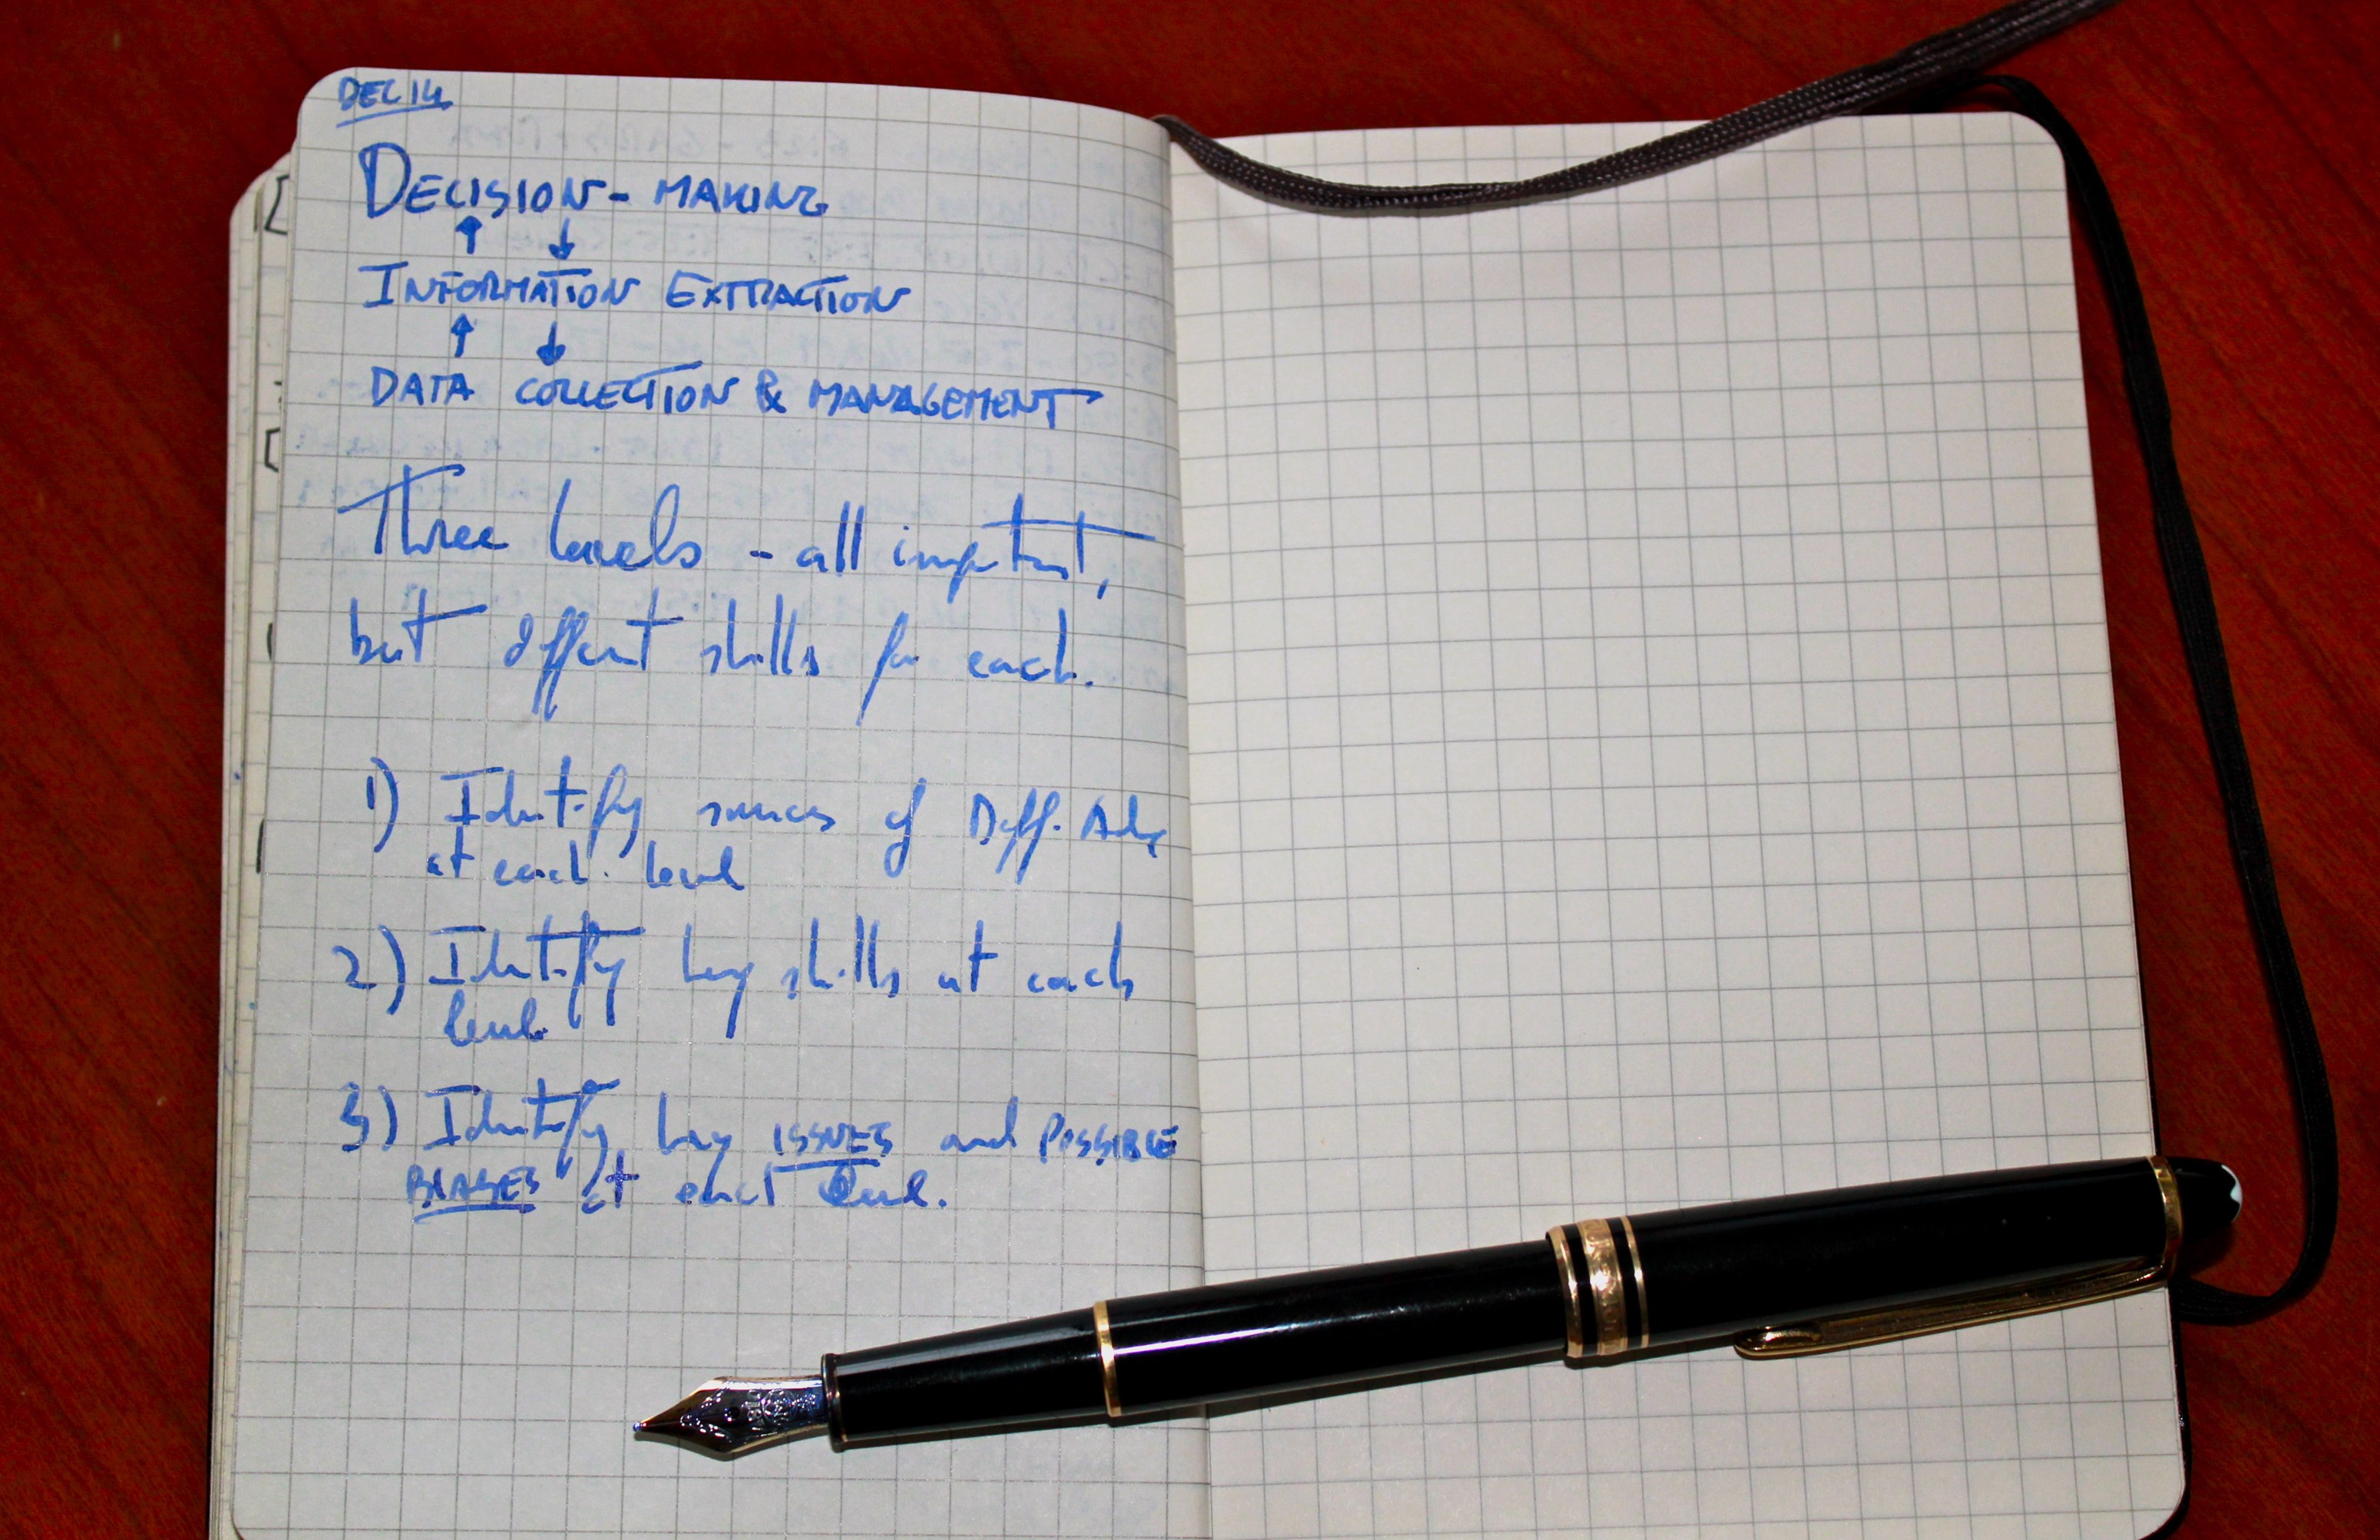 DEC 14
DECISION - MAKING
INFORMATION EXTRACTION
DATA COLLECTION & MANAGEMENT
Three levels - all important,
but different skills for each.
1) Identify sources of Diff. Adv
at each level
2) Identify key skills at each
level
3) Identify key ISSUES and POSSIBLE
BIASES at each level.